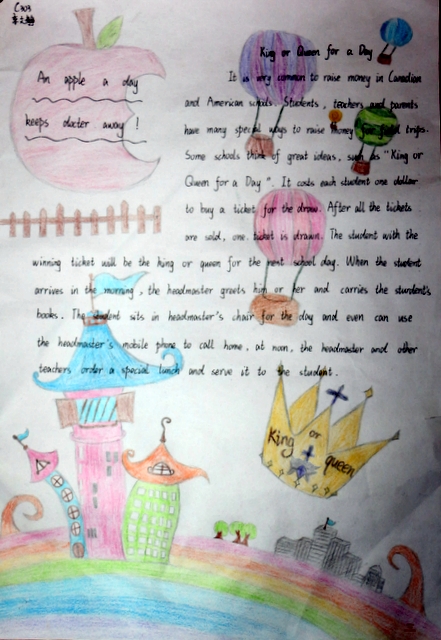 C303
King or Queen for a Day
An apple a day
keeps docter away !
It is very common to raise money in Canadian
and American schools. Students, teachers and parents
have many special ways to raise money for field trips.
Some schools think of great ideas, such as "King or
Queen for a Day". It costs each student one dollar
to buy a ticket for the draw. After all the tickets
are sold, one ticket is drawn. The student with the
winning ticket will be the king or queen for the next school day. When the student
arrives in the morning, the headmaster greets him or her and carries the sturdent's
books. The student sits in headmaster's chair for the day and even can use
the headmaster's mobile phone to call home, at noon, the headmaster and other
teachers order a special lunch and serve it to the student.
King or queen